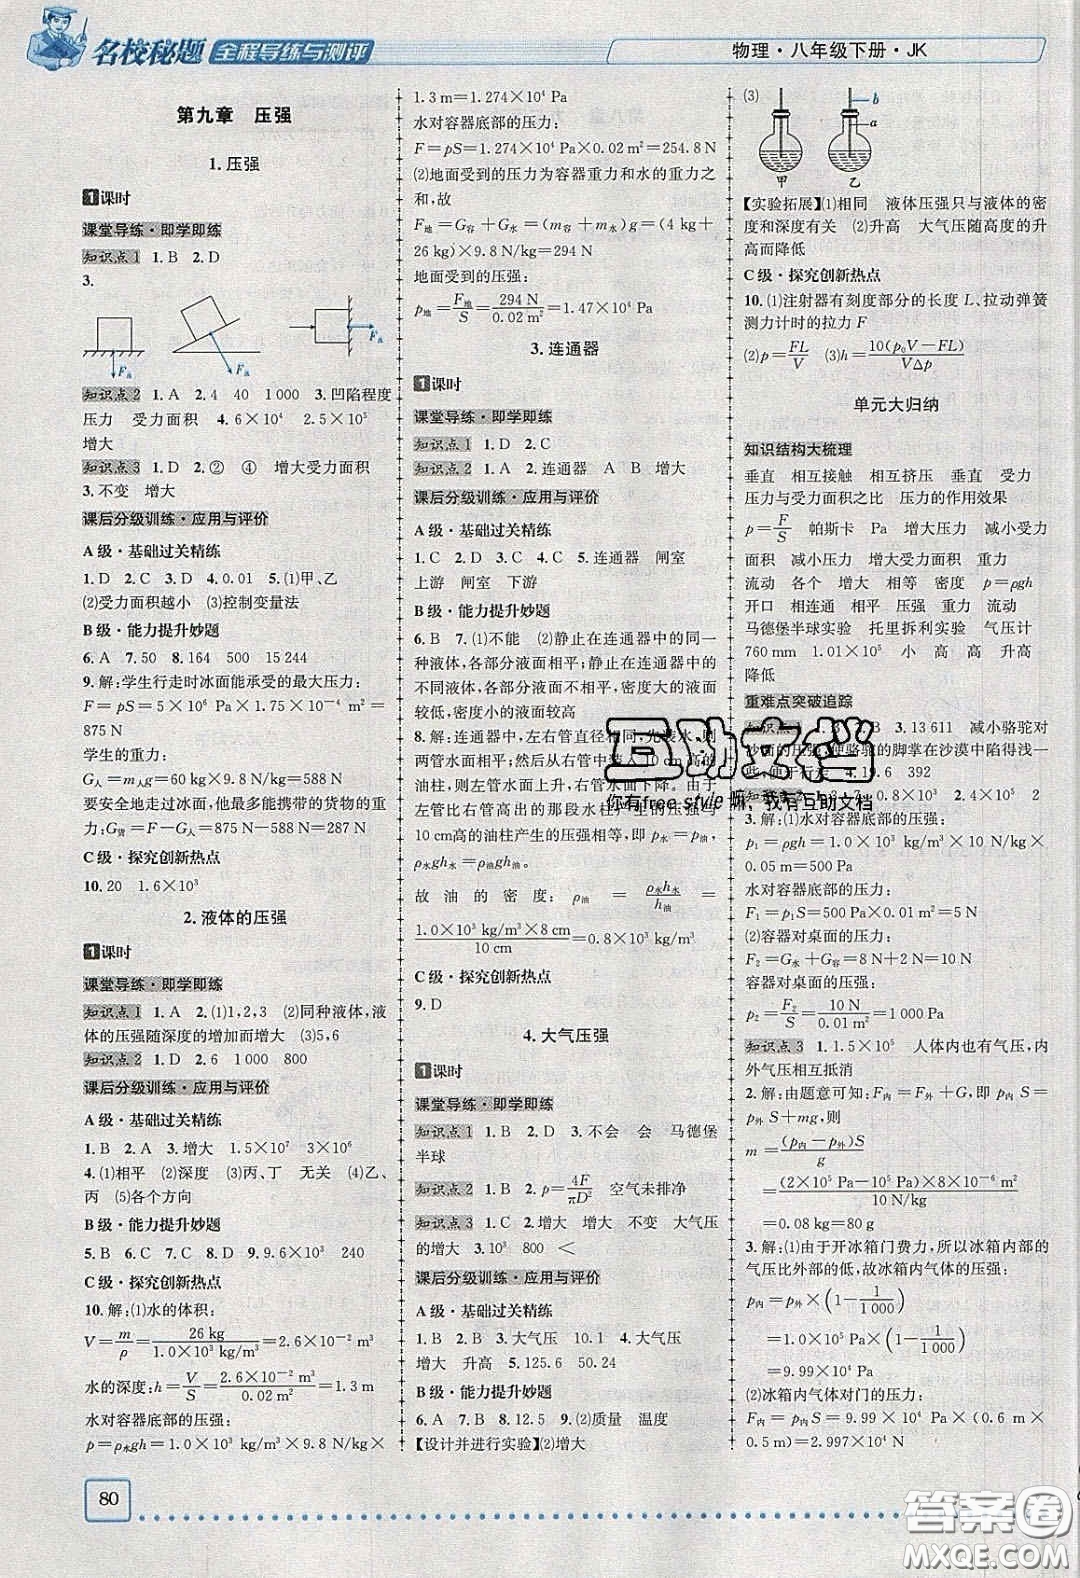 名校秘题 全程导练与测评
物理·八年级下册·JK
第九章 压强
1.压强
1课时
课堂导练·即学即练
知识点1 1.B 2.D
3.
Fₐ Fₐ Fₐ
知识点2 1.A 2.4 40 1000 3.凹陷程度
压力 受力面积 4.6×10⁴ 2.5×10⁵
增大
知识点3 1.D 2.② ④ 增大受力面积
3.不变 增大
课后分级训练·应用与评价
A级·基础过关精练
1.D 2.C 3.D 4.0.01 5.(1)甲、乙
(2)受力面积越小 (3)控制变量法
B级·能力提升妙题
6.A 7.50 8.164 500 15244
9.解:学生行走时冰面能承受的最大压力:
F=pS=5×10⁶ Pa×1.75×10⁻⁴ m²=
875 N
学生的重力:
G人=m人g=60 kg×9.8 N/kg=588 N
要安全地走过冰面,他最多能携带的货物的重
力:G货=F-G人=875 N-588 N=287 N
C级·探究创新热点
10.20 1.6×10³
2.液体的压强
1课时
课堂导练·即学即练
知识点1 1.A 2.(1)1,2,3 (2)同种液体,液
体的压强随深度的增加而增大 (3)5,6
知识点2 1.D 2.6 1000 800
课后分级训练·应用与评价
A级·基础过关精练
1.B 2.A 3.增大 1.5×10⁷ 3×10⁶
4.(1)相平 (2)深度 (3)丙、丁 无关 (4)乙、
丙 (5)各个方向
B级·能力提升妙题
5.B 6.C 7.C 8.D 9.9.6×10³ 240
C级·探究创新热点
10.解:(1)水的体积:
V=m/ρ=26 kg/(1.0×10³ kg/m³)=2.6×10⁻² m³
水的深度:h=V/S=(2.6×10⁻² m³)/(0.02 m²)=1.3 m
水对容器底部的压强:
p=ρ水gh=1.0×10³ kg/m³×9.8 N/kg×
1.3 m=1.274×10⁴ Pa
水对容器底部的压力:
F=pS=1.274×10⁴ Pa×0.02 m²=254.8 N
(2)地面受到的压力为容器重力和水的重力之
和,故
F地=G容+G水=(m容+m水)g=(4 kg+
26 kg)×9.8 N/kg=294 N
地面受到的压强:
p地=F地/S=294 N/0.02 m²=1.47×10⁴ Pa
3.连通器
1课时
课堂导练·即学即练
知识点1 1.D 2.C
知识点2 1.A 2.连通器 A B 增大
课后分级训练·应用与评价
A级·基础过关精练
1.C 2.D 3.C 4.C 5.连通器 闸室
上游 闸室 下游
B级·能力提升妙题
6.B 7.(1)不能 (2)静止在连通器中的同一
种液体,各部分液面相平;静止在连通器中的
不同液体,各部分液面不相平,密度大的液面
较低,密度小的液面较高
8.解:连通器中,左右管直径相同,先装水,则
两管水面相平,当从右管中装入10 cm高的
油柱,则左管水面上升,右管水面下降。由于
左管比右管高出的那段水柱产生的压强与
10 cm高的油柱产生的压强相等,即p水=p油,
ρ水gh水=ρ油gh油。
故油的密度:ρ油=ρ水h水/h油=
(1.0×10³ kg/m³×8 cm)/10 cm=0.8×10³ kg/m³
C级·探究创新热点
9.D
4.大气压强
1课时
课堂导练·即学即练
知识点1 1.B 2.D 3.不会 会 马德堡
半球
知识点2 1.B 2.p=4F/πD² 空气未排净
知识点3 1.C 2.增大 增大 不变 大气压
的增大 3.10³ 800 <
课后分级训练·应用与评价
A级·基础过关精练
1.B 2.B 3.大气压 10.1 4.大气压
增大 升高 5.125.6 50.24
B级·能力提升妙题
6.A 7.B 8.12.5 9.(2)质量 温度
【设计并进行实验】(2)增大
(3)
甲 乙 b a
【实验拓展】(1)相同 液体压强只与液体的密
度和深度有关 (2)升高 大气压随高度的升
高而降低
C级·探究创新热点
10.(1)注射器有刻度部分的长度L、拉动弹簧
测力计时的拉力F
(2)p=FL/V (3)h=10(p₀V-FL)/VΔp
单元大归纳
知识结构大梳理
垂直 相互接触 相互挤压 垂直 受力
压力与受力面积之比 压力的作用效果
p=F/S 帕斯卡 Pa 增大压力 减小受力
面积 减小压力 增大受力面积 重力
流动 各个 增大 相等 密度 p=ρgh
开口 相连通 相平 压强 重力 流动
马德堡半球实验 托里拆利实验 气压计
760 mm 1.01×10⁵ 小 高 高 升高
降低
重难点突破追踪
知识点1 B 3.13611 减小骆驼对
沙漠的压强,使骆驼的脚掌在沙漠中陷得浅一
些,便于行走 4.19.6 392
知识点2 0.8×10³ 2.4×10⁵
3.解:(1)水对容器底部的压强:
p₁=ρgh=1.0×10³ kg/m³×10 N/kg×
0.05 m=500 Pa
水对容器底部的压力:
F₁=p₁S=500 Pa×0.01 m²=5 N
(2)容器对桌面的压力:
F₂=G水+G容=8 N+2 N=10 N
容器对桌面的压强:
p₂=F₂/S=10 N/0.01 m²=1000 Pa
知识点3 1.1.5×10⁵ 人体内也有气压,内
外气压相互抵消
2.解:由题意可知:F内=F外+G,即p内S=
p外S+mg,则
m=(p内-p外)S/g
=(2×10⁵ Pa-1×10⁵ Pa)×8×10⁻⁶ m²/10 N/kg
=0.08 kg=80 g
3.解:(1)由于开冰箱门费力,所以冰箱内部的
气压比外部的低,故冰箱内气体的压强:
p内=p外×(1-1/1000)
=1.0×10⁵ Pa×(1-1/1000)
=9.99×10⁴ Pa
(2)冰箱内气体对门的压力:
F内=p内S=9.99×10⁴ Pa×(0.6 m×
0.5 m)=2.997×10⁴ N
互助文档
你有free style嘛,我有互助文档
80
答案圈
MXQE.COM